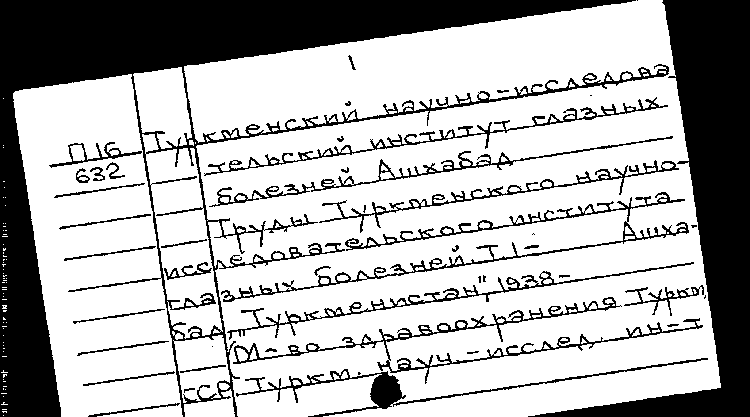 1
П16
632
Туркменский научно-исследова
тельский институт глазных
болезней Ашхабад
Труды Туркменского научно-
исследовательского института
глазных болезней. Т. 1- Ашха-
бад, „Туркменистан", 1938-
(М-во здравоохранения Туркм.
ССР. Туркм. науч.-исслед. ин-т